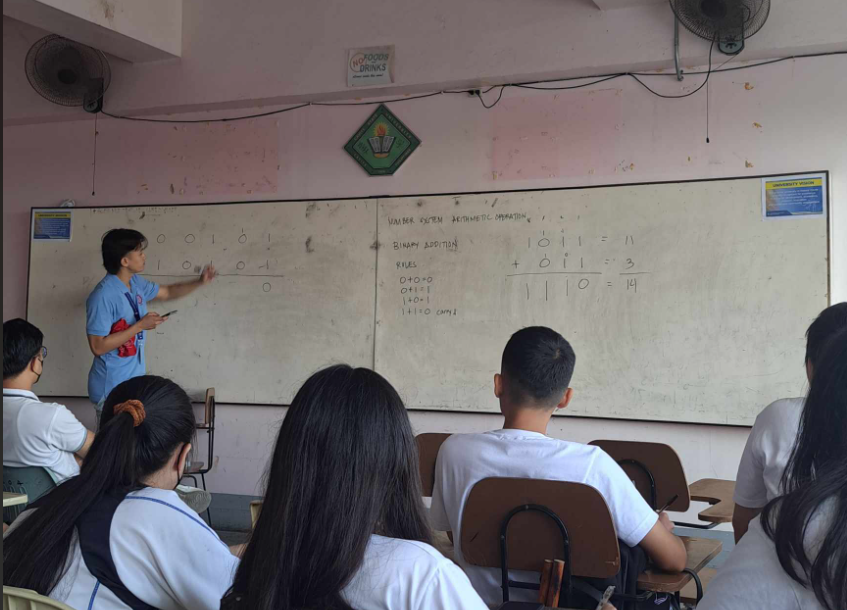 NO FOODS
DRINKS
UNIVERSITY VISION
NUMBER SYSTEM ARITHMETIC OPERATION
BINARY ADDITION
RULES
0+0=0
0+1=1
1+0=1
1+1=0 carry 1
1 0 1 1 = 11
+ 0 1 1 = 3
1 1 1 0 = 14
0 0 1 0 1
1 0 1 0 1
0